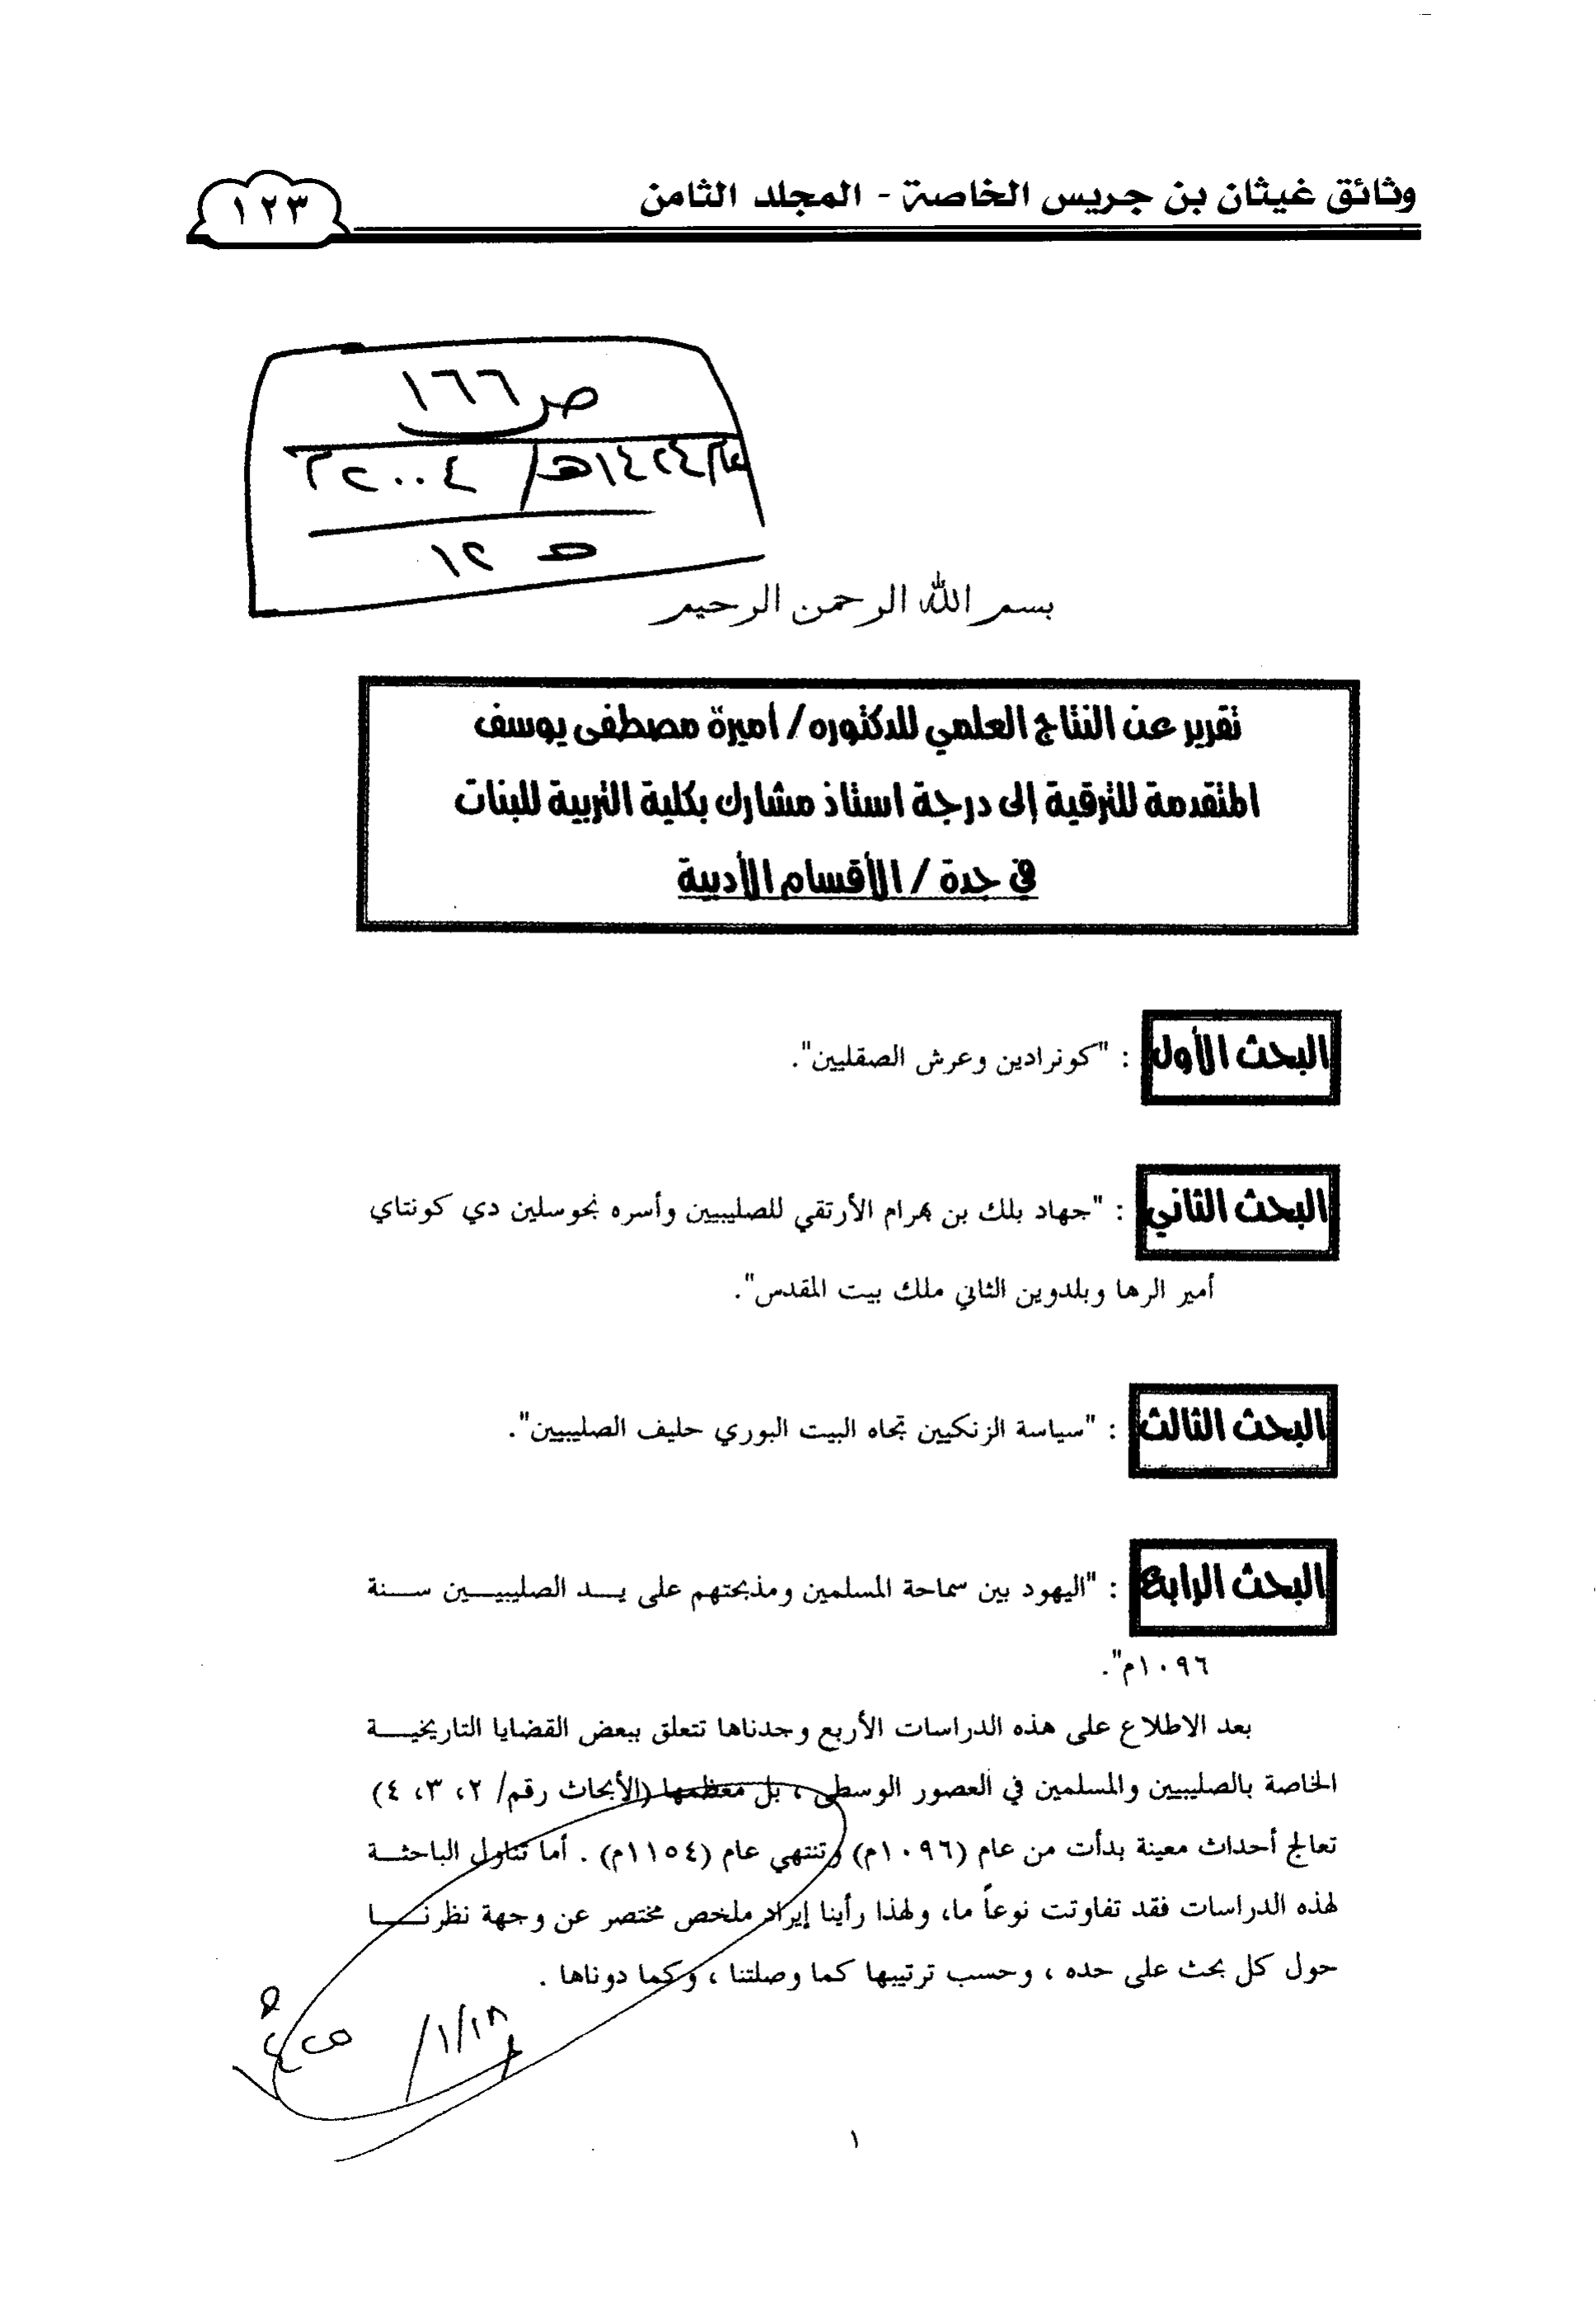 وثائق غيثان بن جريس الخاصة - المجلد الثامن
١٢٣
ص ١٦٦
عام ١٤٢٤هـ / ٢٠٠٤م
١٢ هـ
بسم الله الرحمن الرحيم
تقرير عن النتاج العلمي للدكتوره / أميرة مصطفى يوسف
المتقدمة للترقية إلى درجة استاذ مشارك بكلية التربية للبنات
في جدة / الأقسام الأدبية
البحث الأول : "كونرادين وعرش الصقليين".
البحث الثاني : "جهاد بلك بن بهرام الأرتقي للصليبيين وأسره لجوسلين دي كونتاي
أمير الرها وبلدوين الثاني ملك بيت المقدس".
البحث الثالث : "سياسة الزنكيين تجاه البيت البوري حليف الصليبيين".
البحث الرابع : "اليهود بين سماحة المسلمين ومذبحتهم على يد الصليبيين سنة
١٠٩٦م".
بعد الاطلاع على هذه الدراسات الأربع وجدناها تتعلق ببعض القضايا التاريخية
الخاصة بالصليبيين والمسلمين في العصور الوسطى ، بل معظمها (الأبحاث رقم/ ٢، ٣، ٤)
تعالج أحداث معينة بدأت من عام (١٠٩٦م) وتنتهي عام (١١٥٤م) . أما تناول الباحثة
لهذه الدراسات فقد تفاوتت نوعاً ما، ولهذا رأينا إيراد ملخص مختصر عن وجهة نظرنا
حول كل بحث على حده ، وحسب ترتيبها كما وصلتنا ، وكما دوناها .
١